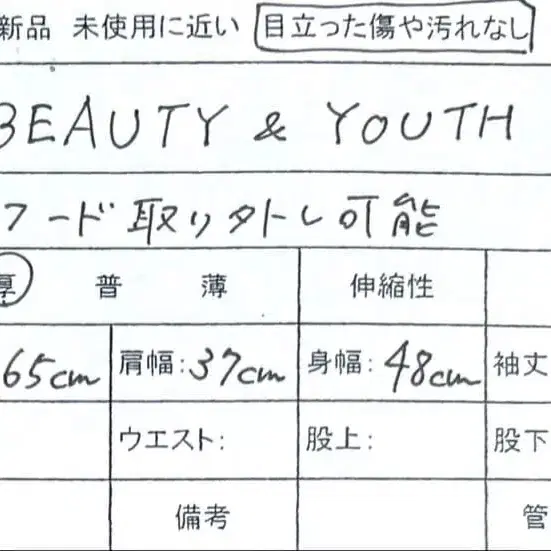 新品 未使用に近い 目立った傷や汚れなし
BEAUTY & YOUTH
フード取り外し可能
厚 普 薄 伸縮性
65cm 肩幅:37cm 身幅:48cm 袖丈
ウエスト: 股上: 股下
備考 管